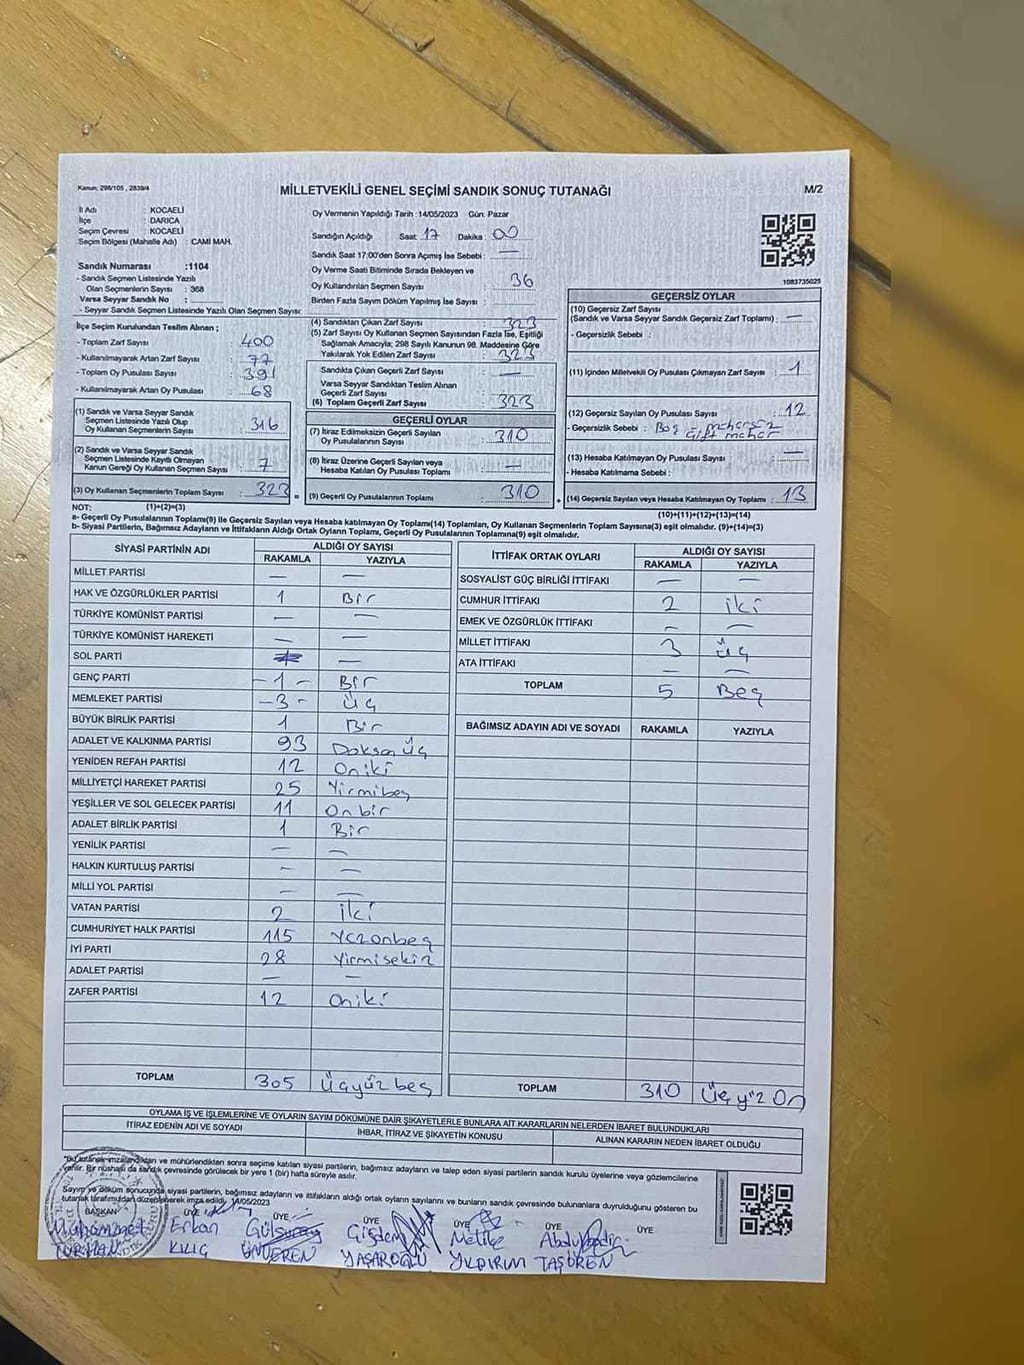 Kanun: 298/105 , 2839/4
MİLLETVEKİLİ GENEL SEÇİMİ SANDIK SONUÇ TUTANAĞI
M/2
İl Adı : KOCAELİ
İlçe : DARICA
Seçim Çevresi : KOCAELİ
Seçim Bölgesi (Mahalle Adı) : CAMİ MAH.
Sandık Numarası :1104
- Sandık Seçmen Listesinde Yazılı
Olan Seçmenlerin Sayısı : 368
Varsa Seyyar Sandık No :
- Seyyar Sandık Seçmen Listesinde Yazılı Olan Seçmen Sayısı:
Oy Vermenin Yapıldığı Tarih :14/05/2023 Gün: Pazar
Sandığın Açıldığı Saat: 17 Dakika: 00
Sandık Saat 17:00'den Sonra Açımış İse Sebebi : —
Oy Verme Saati Bitiminde Sırada Bekleyen ve
Oy Kullandırılan Seçmen Sayısı : 36
Birden Fazla Sayım Döküm Yapılmış İse Sayısı :
1083735025
İlçe Seçim Kurulundan Teslim Alınan ;
- Toplam Zarf Sayısı : 400
- Kullanılmayarak Artan Zarf Sayısı : 77
- Toplam Oy Pusulası Sayısı : 391
- Kullanılmayarak Artan Oy Pusulası : 68
(1) Sandık ve Varsa Seyyar Sandık
Seçmen Listesinde Yazılı Olup
Oy Kullanan Seçmenlerin Sayısı : 316
(2) Sandık ve Varsa Seyyar Sandık
Seçmen Listesinde Kayıtlı Olmayan
Kanun Gereği Oy Kullanan Seçmen Sayısı : 7
(3) Oy Kullanan Seçmenlerin Toplam Sayısı : 323 =
(4) Sandıktan Çıkan Zarf Sayısı : 323
(5) Zarf Sayısı Oy Kullanan Seçmen Sayısından Fazla İse, Eşitliği
Sağlamak Amacıyla; 298 Sayılı Kanunun 98. Maddesine Göre
Yakılarak Yok Edilen Zarf Sayısı : 323
Sandıkta Çıkan Geçerli Zarf Sayısı : —
Varsa Seyyar Sandıktan Teslim Alınan
Geçerli Zarf Sayısı : —
(6) Toplam Geçerli Zarf Sayısı : 323
GEÇERLİ OYLAR
(7) İtiraz Edilmeksizin Geçerli Sayılan
Oy Pusulalarının Sayısı : 310
(8) İtiraz Üzerine Geçerli Sayılan veya
Hesaba Katılan Oy Pusulası Toplamı : —
(9) Geçerli Oy Pusulalarının Toplamı : 310 +
GEÇERSİZ OYLAR
(10) Geçersiz Zarf Sayısı
(Sandık ve Varsa Seyyar Sandık Geçersiz Zarf Toplamı) : —
- Geçersizlik Sebebi :
(11) İçinden Milletvekili Oy Pusulası Çıkmayan Zarf Sayısı : 1
(12) Geçersiz Sayılan Oy Pusulası Sayısı : 12
- Geçersizlik Sebebi : Boş mühürsüz
Çift mühür
(13) Hesaba Katılmayan Oy Pusulası Sayısı : —
- Hesaba Katılmama Sebebi :
(14) Geçersiz Sayılan veya Hesaba Katılmayan Oy Toplamı : 13
NOT: (1)+(2)=(3)
(10)+(11)+(12)+(13)=(14)
a- Geçerli Oy Pusulalarının Toplamı(9) ile Geçersiz Sayılan veya Hesaba katılmayan Oy Toplamı(14) Toplamları, Oy Kullanan Seçmenlerin Toplam Sayısına(3) eşit olmalıdır. (9)+(14)=(3)
b- Siyasi Partilerin, Bağımsız Adayların ve İttifakların Aldığı Ortak Oyların Toplamı, Geçerli Oy Pusulalarının Toplamına(9) eşit olmalıdır.
SİYASİ PARTİNİN ADI ALDIĞI OY SAYISI
RAKAMLA YAZIYLA
MİLLET PARTİSİ — —
HAK VE ÖZGÜRLÜKLER PARTİSİ 1 Bir
TÜRKİYE KOMÜNİST PARTİSİ — —
TÜRKİYE KOMÜNİST HAREKETİ — —
SOL PARTİ —
GENÇ PARTİ -1- Bir
MEMLEKET PARTİSİ -3- Üç
BÜYÜK BİRLİK PARTİSİ 1 Bir
ADALET VE KALKINMA PARTİSİ 93 Doksan Üç
YENİDEN REFAH PARTİSİ 12 Oniki
MİLLİYETÇİ HAREKET PARTİSİ 25 Yirmibeş
YEŞİLLER VE SOL GELECEK PARTİSİ 11 Onbir
ADALET BİRLİK PARTİSİ 1 Bir
YENİLİK PARTİSİ — —
HALKIN KURTULUŞ PARTİSİ — —
MİLLİ YOL PARTİSİ — —
VATAN PARTİSİ 2 İki
CUMHURİYET HALK PARTİSİ 115 Yüzonbeş
İYİ PARTİ 28 Yirmisekiz
ADALET PARTİSİ — —
ZAFER PARTİSİ 12 Oniki
TOPLAM 305 Üçyüz beş
İTTİFAK ORTAK OYLARI ALDIĞI OY SAYISI
RAKAMLA YAZIYLA
SOSYALİST GÜÇ BİRLİĞİ İTTİFAKI — —
CUMHUR İTTİFAKI 2 iki
EMEK VE ÖZGÜRLÜK İTTİFAKI — —
MİLLET İTTİFAKI 3 üç
ATA İTTİFAKI — —
TOPLAM 5 Beş
BAĞIMSIZ ADAYIN ADI VE SOYADI RAKAMLA YAZIYLA
TOPLAM 310 Üçyüz On
OYLAMA İŞ VE İŞLEMLERİNE VE OYLARIN SAYIM DÖKÜMÜNE DAİR ŞİKAYETLERLE BUNLARA AİT KARARLARIN NELERDEN İBARET BULUNDUKLARI
İTİRAZ EDENİN ADI VE SOYADI
İHBAR, İTİRAZ VE ŞİKAYETİN KONUSU
ALINAN KARARIN NEDEN İBARET OLDUĞU
*Bu tutanak imzalandıktan ve mühürlendikten sonra seçime katılan siyasi partilerin, bağımsız adayların ve talep eden siyasi partilerin sandık kurulu üyelerine veya gözlemcilerine
verilir. Bir nüshası da sandık çevresinde görülecek bir yere 1 (bir) hafta süreyle asılır.
Sayım ve döküm sonucunda siyasi partilerin, bağımsız adayların ve ittifakların aldığı ortak oyların sayılarını ve bunların sandık çevresinde bulunanlara duyrulduğunu gösteren bu
tutanak tarafımızdan düzenlenerek imza edildi. 14/05/2023
BAŞKAN ÜYE ÜYE ÜYE ÜYE ÜYE ÜYE
Muhammet Erkan Gülsüm Çiğdem Melike Abdulkadir
TURHAN KILIÇ ÜNVEREN YAŞAROĞLU YILDIRIM TAŞÖREN